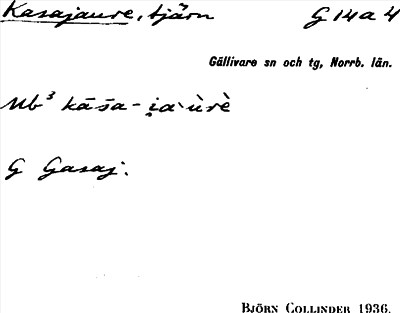 Kasajaure, tjärn G 14 a 4
Gällivare sn och tg, Norrb. län.
Ub³ kāsa - i̯a`ùrè
G Gasaj.
BJÖRN COLLINDER 1936.